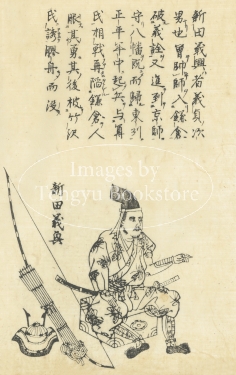 新田義興者義貞次
男也曽帥師入鎌倉
破義詮又進到京師
守八幡既而歸東到
正平年中起兵与尊
氏相戦再陥鎌倉人
服其勇其後被竹沢
氏誘殷舟而没
新田義興
Images by
Tengyu Bookstore